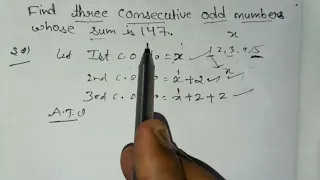 Find three consecutive odd numbers
whose sum is 147.
x
Sol) Let Ist C.O = x 1, 2, 3, 4, 5
x
2nd C.O.No = x+2
3rd C.O.No = x+2+2
A.T.Q